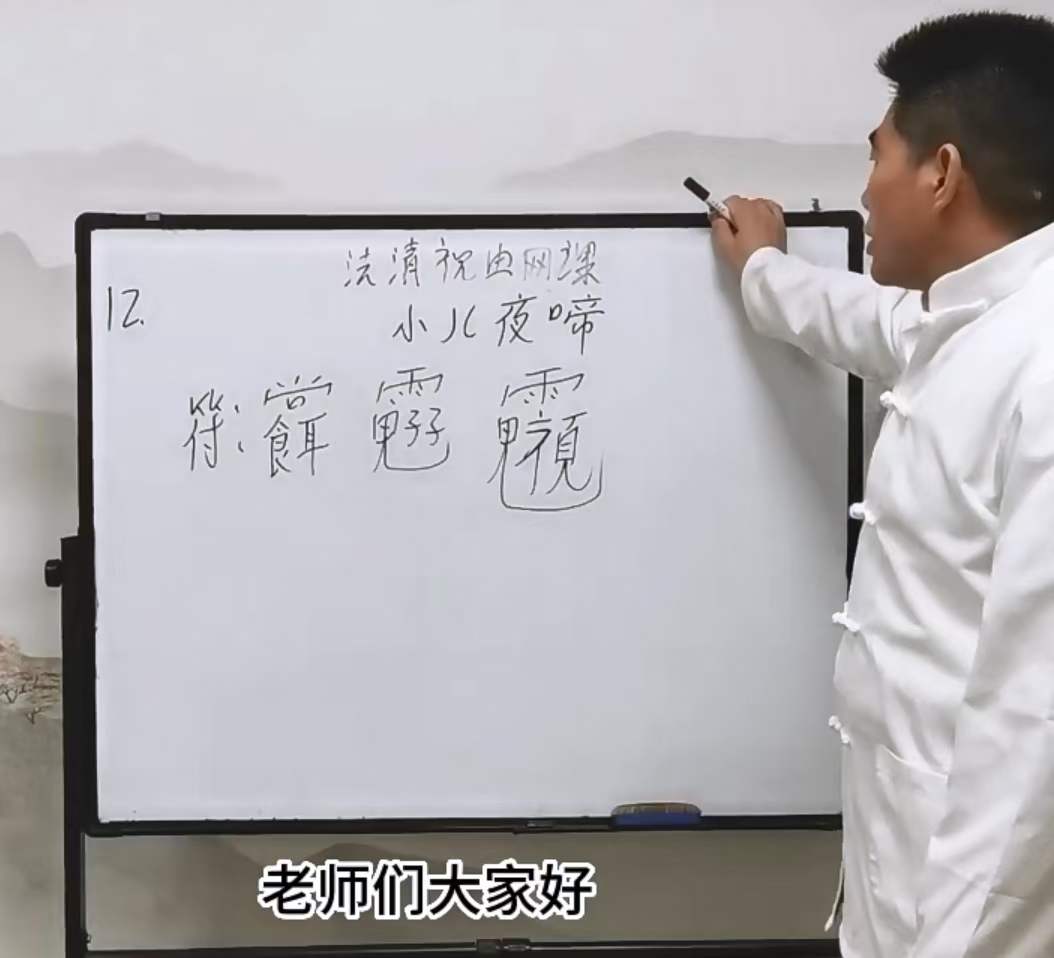 法清祝由网课
12.
小儿夜啼
符:
老师们大家好